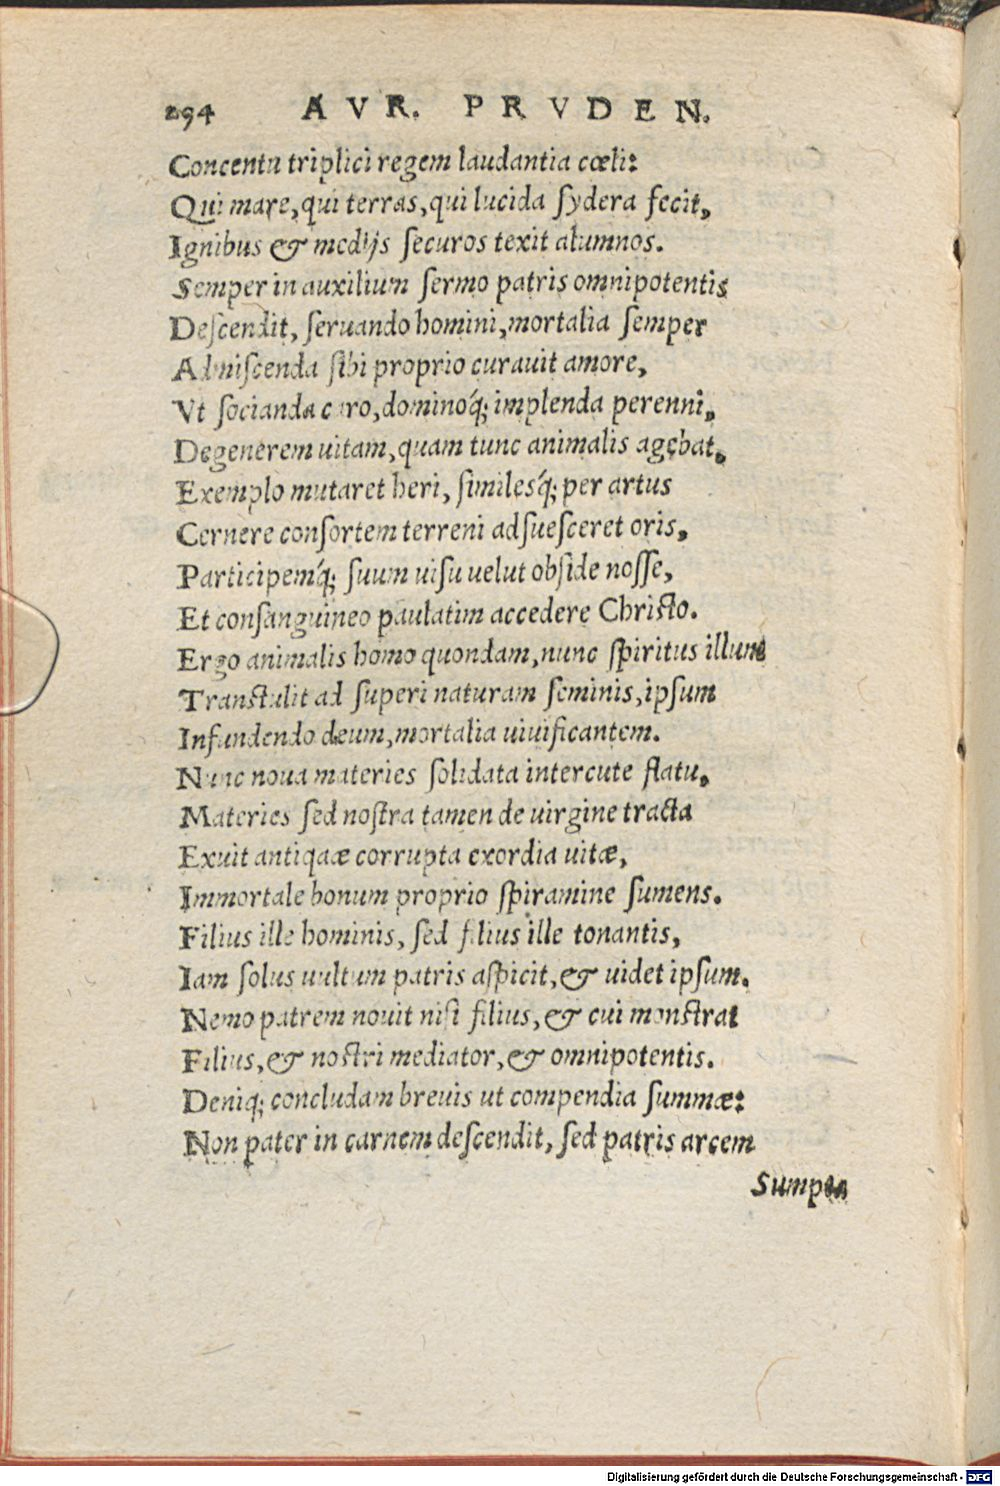 294 AVR. PRVDEN.
Concentu triplici regem laudantia cœli:
Qui mare, qui terras, qui lucida ſydera fecit,
Ignibus & medijs ſecuros texit alumnos.
Semper in auxilium ſermo patris omnipotentis
Deſcendit, ſeruando homini, mortalia ſemper
Admiſcenda ſibi proprio curauit amore,
Vt ſocianda caro, dominoq́; implenda perenni,
Degenerem uitam, quam tunc animalis agebat,
Exemplo mutaret heri, ſimilesq́; per artus
Cernere conſortem terreni adſueſceret oris,
Participemq́; ſuum uiſu uelut obſide noſſe,
Et conſanguineo paulatim accedere Chriſto.
Ergo animalis homo quondam, nunc ſpiritus illum
Tranſtulit ad ſuperi naturam ſeminis, ipſum
Infundendo deum, mortalia uiuificantem.
Nunc noua materies ſolidata intercute flatu,
Materies ſed noſtra tamen de uirgine tracta
Exuit antiquæ corrupta exordia uitæ,
Immortale bonum proprio ſpiramine ſumens.
Filius ille hominis, ſed filius ille tonantis,
Iam ſolus uultum patris aſpicit, & uidet ipſum.
Nemo patrem nouit niſi filius, & cui monſtrat
Filius, & noſtri mediator, & omnipotentis.
Deniq; concludam breuis ut compendia ſummæ:
Non pater in carnem deſcendit, ſed patris arcem
Sumpta
Digitalisierung gefördert durch die Deutsche Forschungsgemeinschaft - DFG